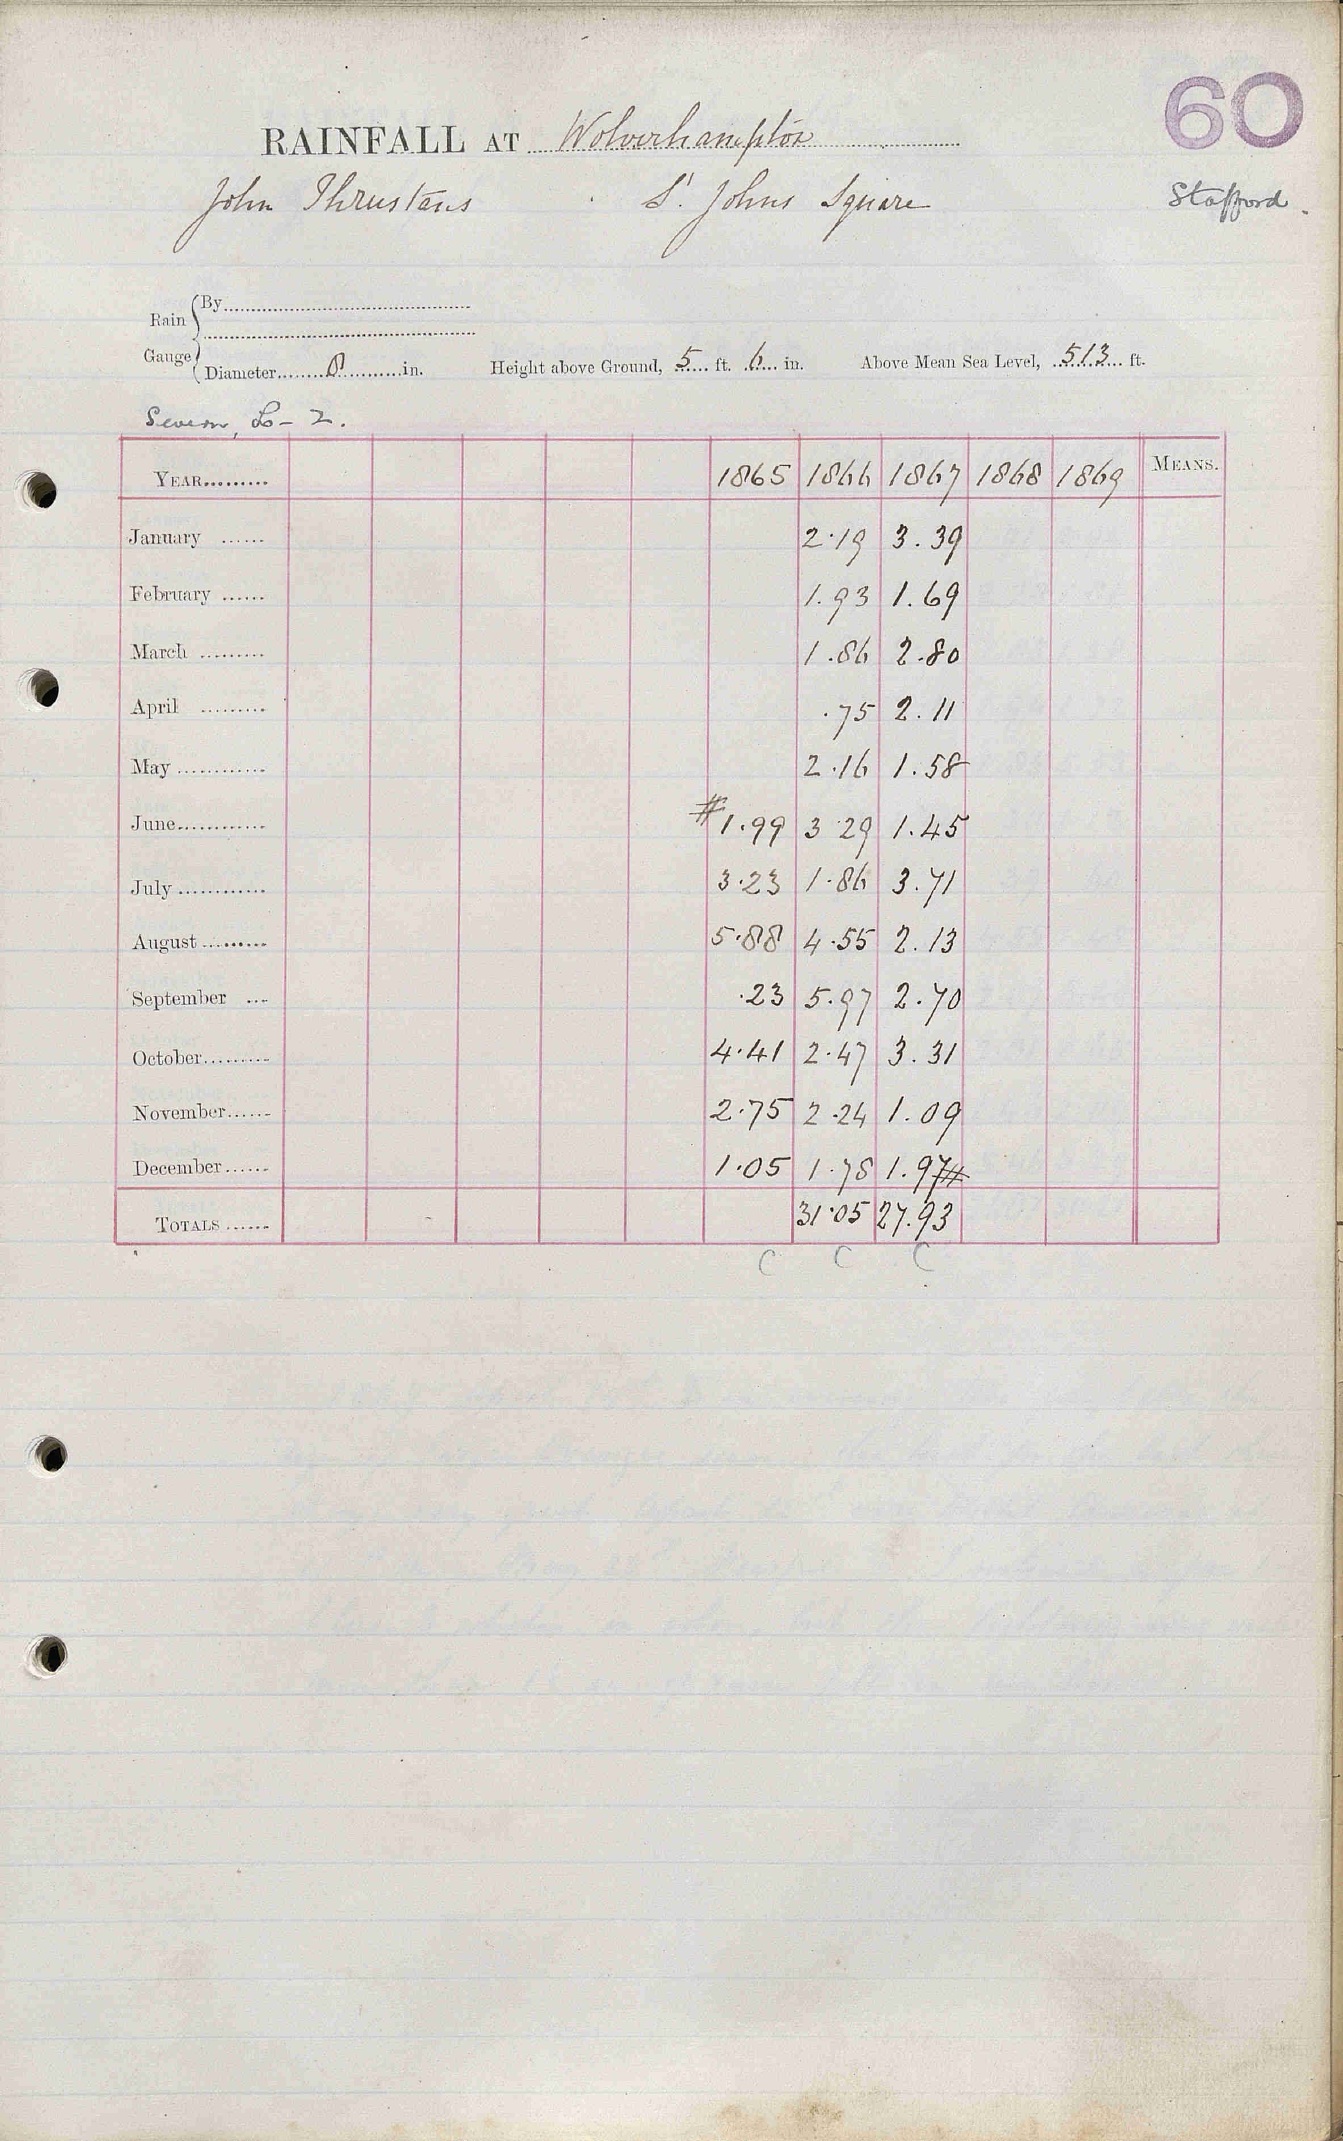 60
RAINFALL AT Wolverhampton
John Thrustans St. Johns Square
Stafford.
Rain Gauge { By
Diameter 8 in. Height above Ground, 5 ft. 6 in. Above Mean Sea Level, 513 ft.
Severn, L - 2.
YEAR 1865 1866 1867 1868 1869 MEANS.
January 2.19 3.39
February 1.93 1.69
March 1.86 2.80
April .75 2.11
May 2.16 1.58
June # 1.99 3 29 1.45
July 3.23 1.86 3.71
August 5.88 4.55 2.13
September .23 5.97 2.70
October 4.41 2.47 3.31
November 2.75 2.24 1.09
December 1.05 1.78 1.97 #
TOTALS 31.05 27.93
C C C